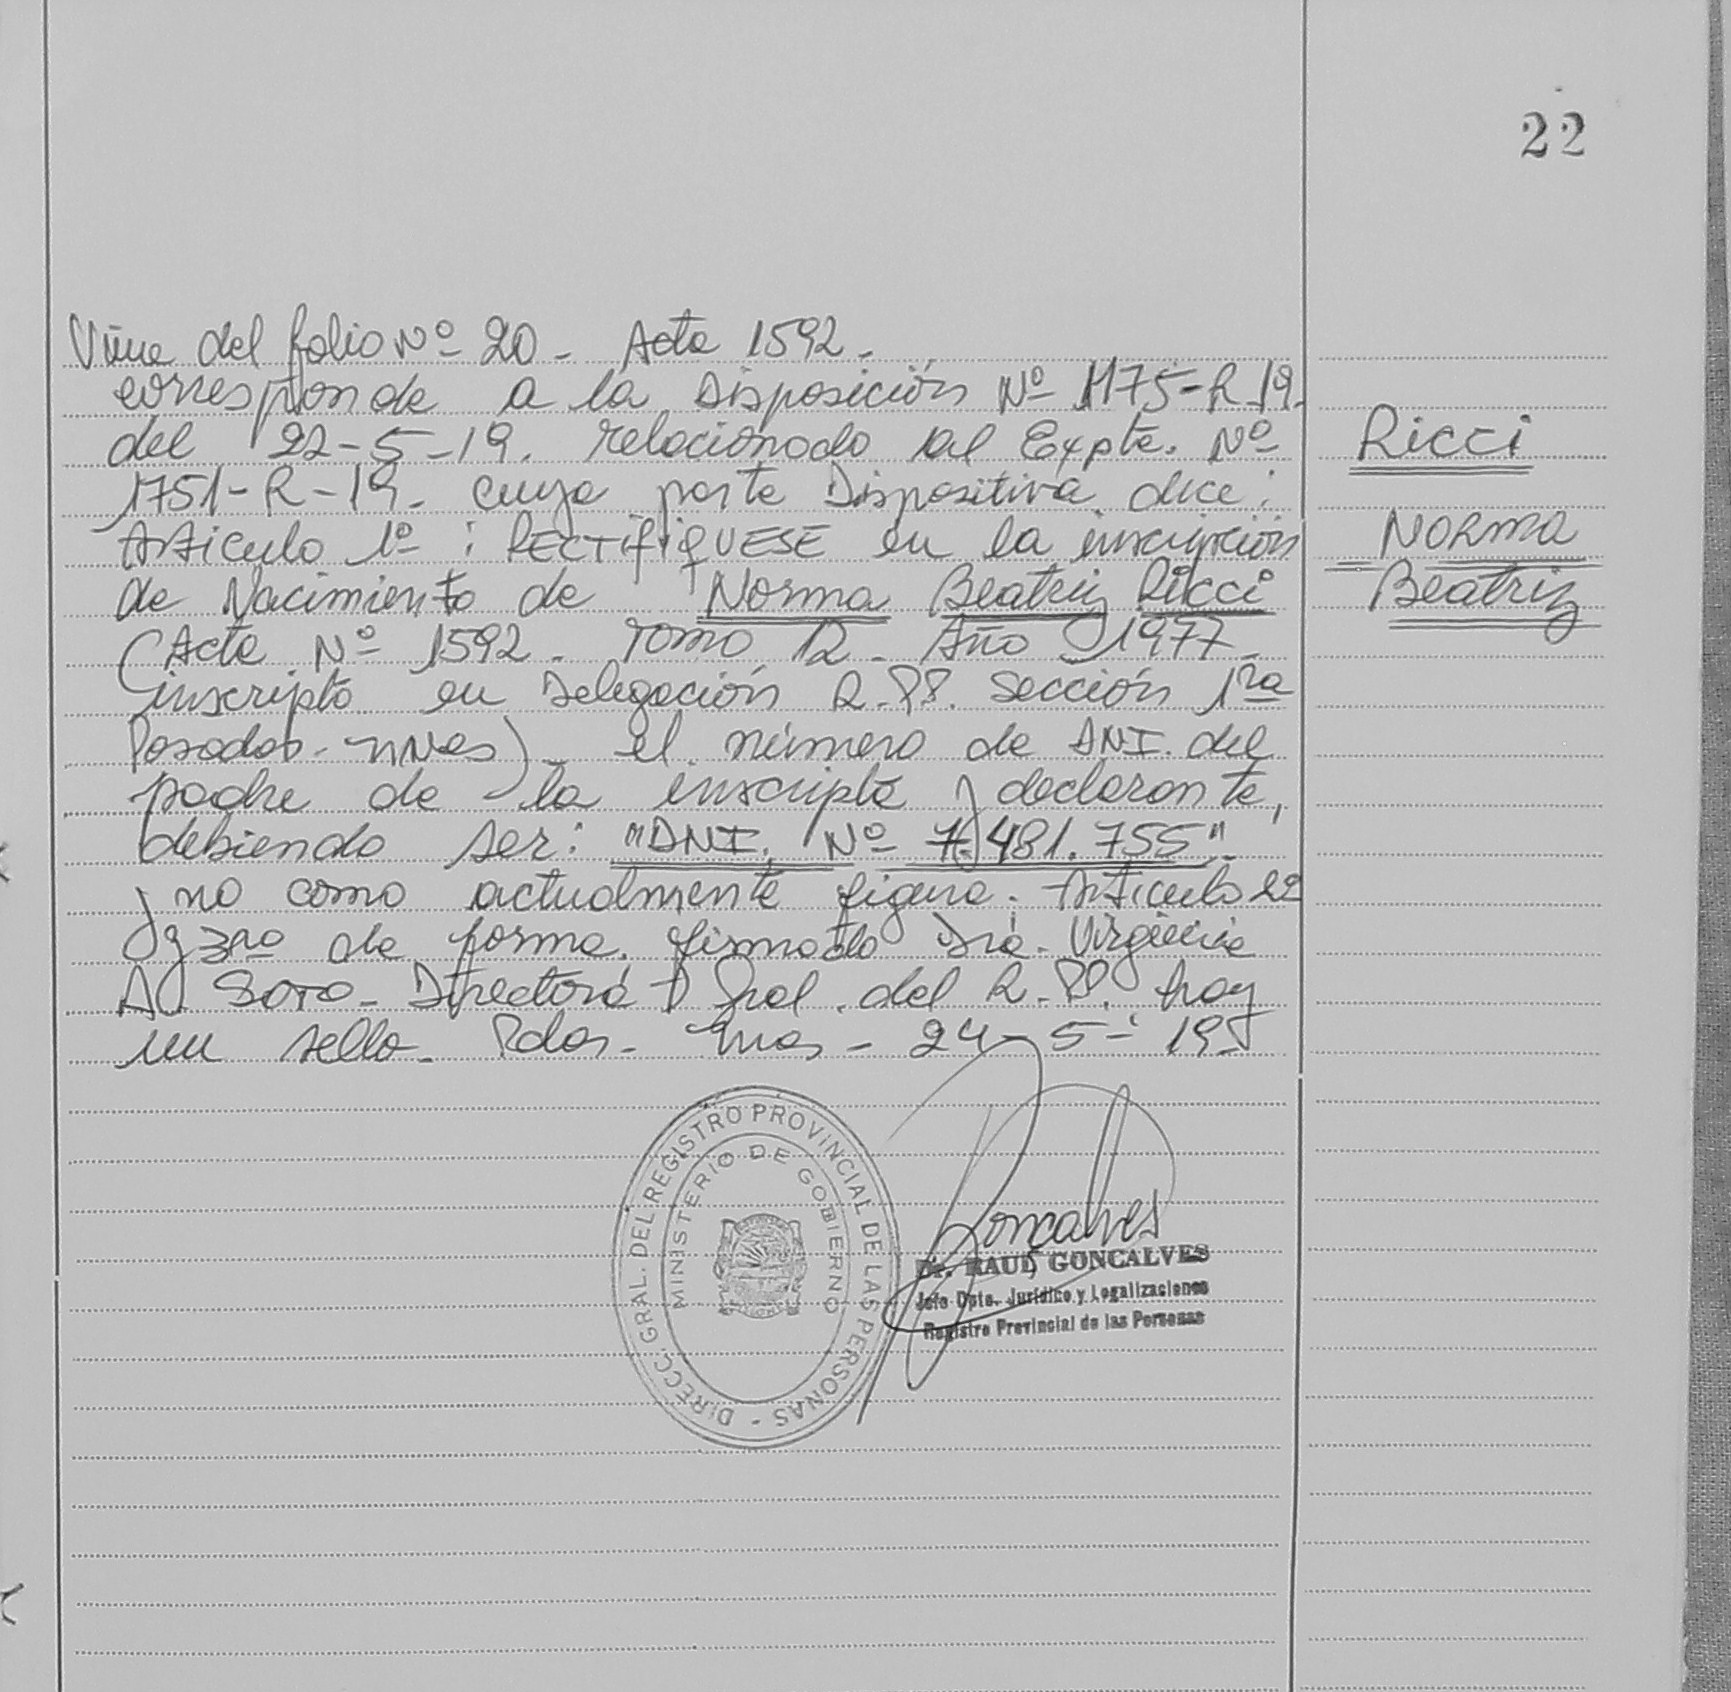 22
Viene del folio Nº 20 - Acta 1592.
corresponde a la Disposición Nº 1175-R-19.
del 22-5-19. relacionado al Expte. Nº
1751-R-19. cuya parte Dispositiva dice:
Articulo 1º : RECTIFIQUESE en la inscripción
de Nacimiento de Norma Beatriz Ricci
(Acta Nº 1592. Tomo 12 - Año 1977 -
inscripta en Delegación R.PP. Sección 1ra
Posadas - Mnes) - el número de DNI. del
padre de la inscripta y declarante,
debiendo ser: "DNI. Nº 7.481.755"
y no como actualmente figura. Articulo 2º
y 3ro de forma. firmado Dra. Virginia
A. Soto - Directora Gral. del R.PP. hay
un sello. Pdas - Mnes - 24-5-19
Ricci
Norma
Beatriz
DIRECC. GRAL. DEL REGISTRO PROVINCIAL DE LAS PERSONAS -
MINISTERIO DE GOBIERNO
Goncalves
Dr. RAUL GONCALVES
Jefe Dpto. Jurídico y Legalizaciones
Registro Provincial de las Personas